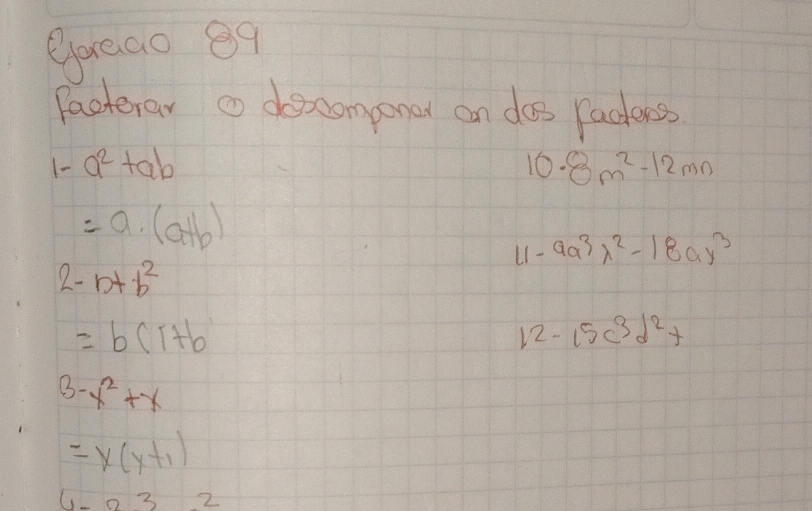 Ejercicio 89
factorar o descomponer en dos factores.
1- a² + ab
= a. (a+b)
2- b + b²
= b (1+b
3- x² + x
= x (x+1)
4- 3 2
10- 8m² - 12mn
11- 9a³x² - 18ax³
12- 15c³d² +